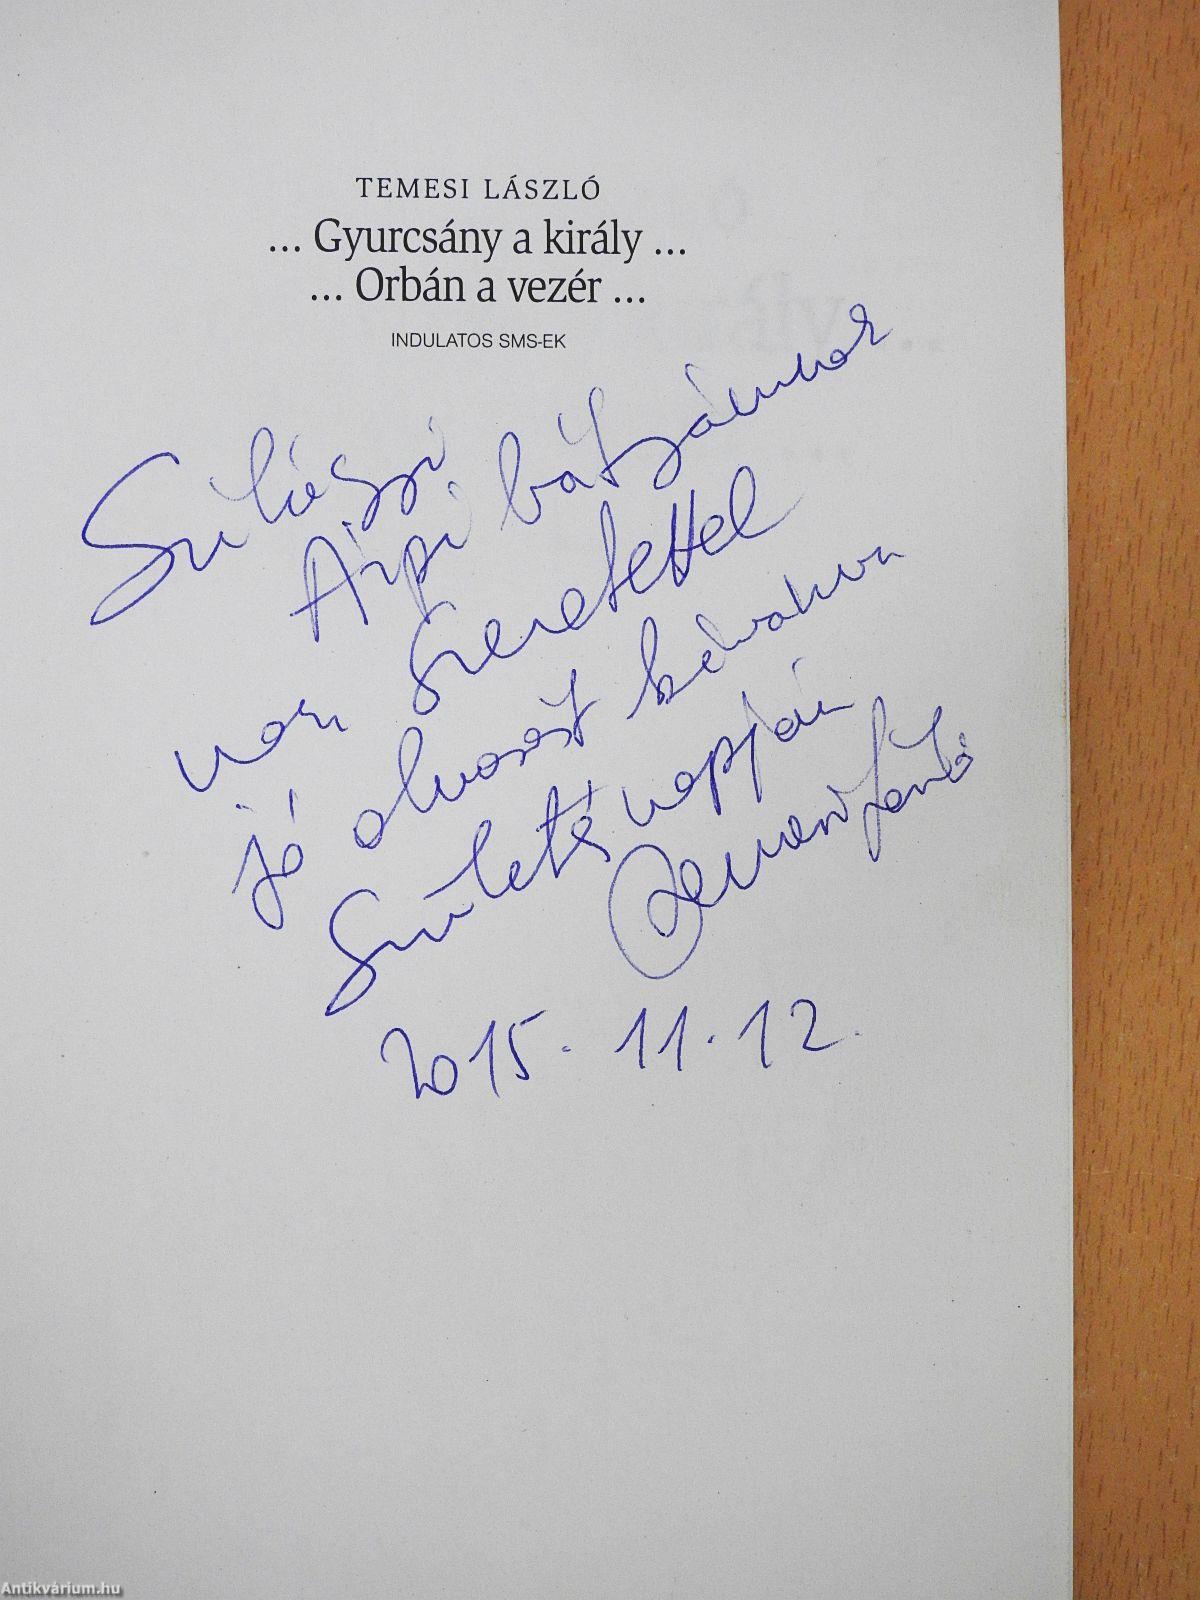 TEMESI LÁSZLÓ
... Gyurcsány a király ...
... Orbán a vezér ...
INDULATOS SMS-EK
Szilágyi
Árpi bátyámnak
nagy szeretettel
jó olvasást kívánva
születés napján
Temesi László
2015. 11. 12.
Antikvárium.hu